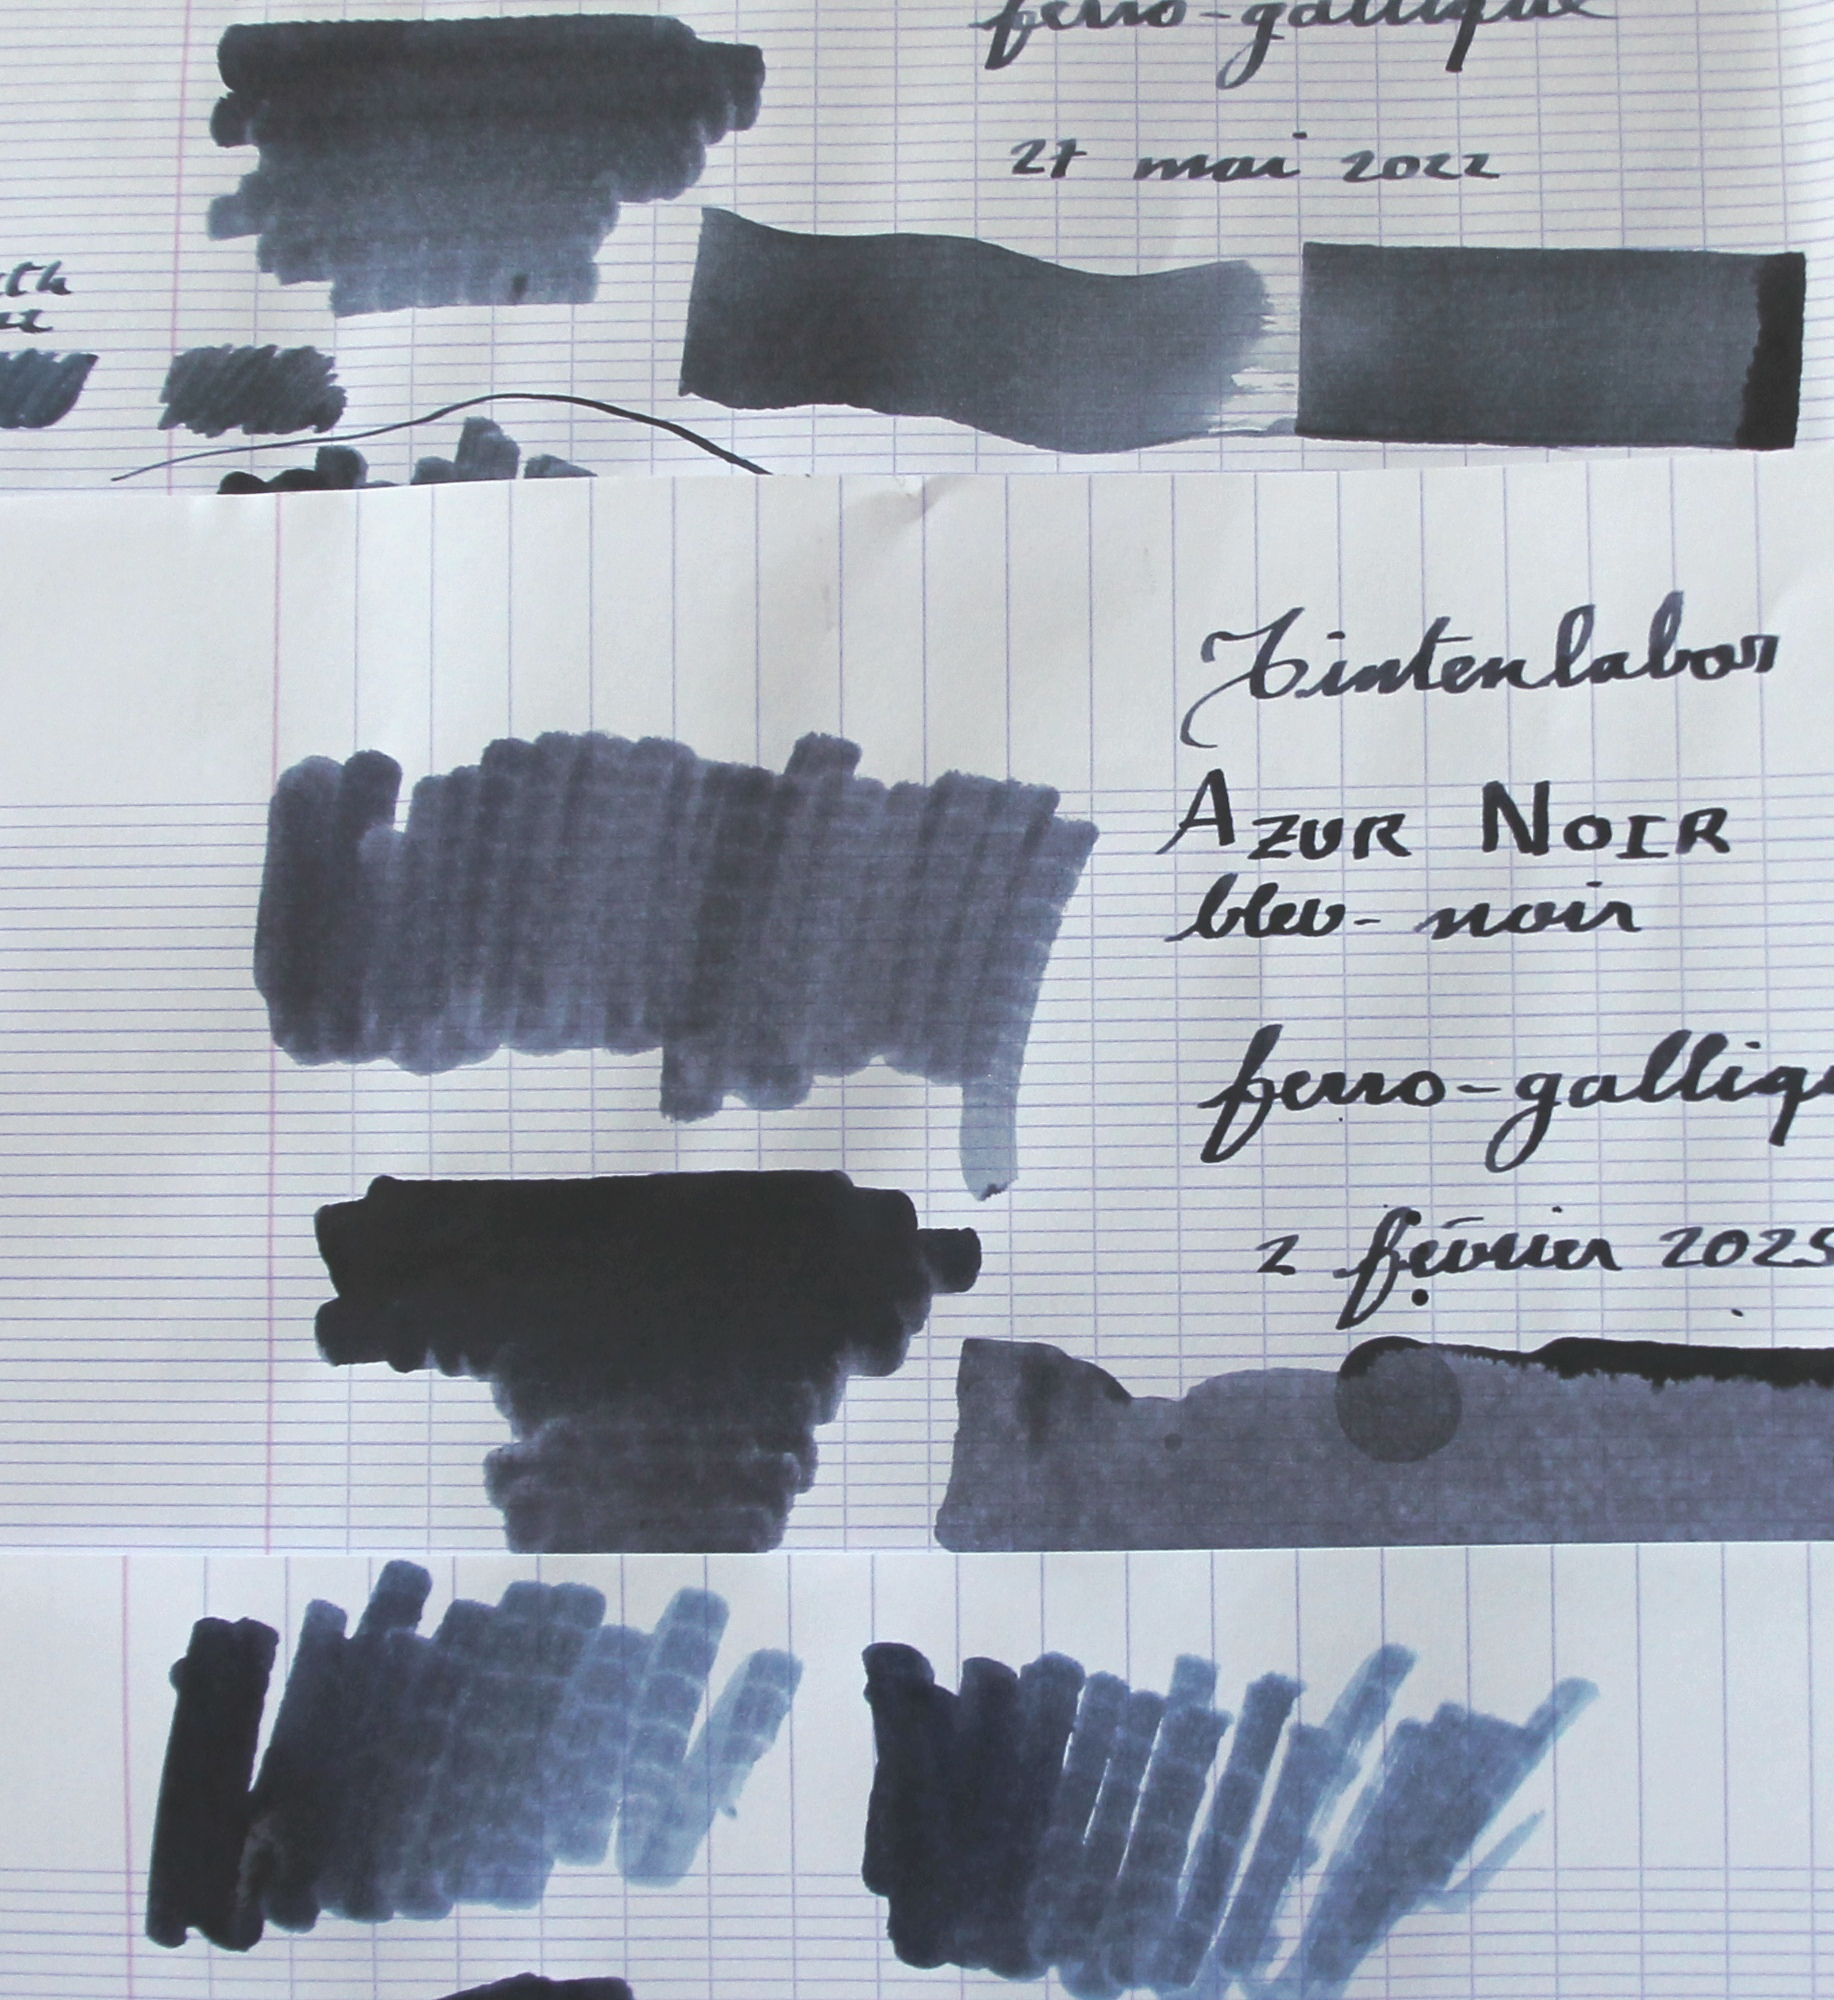 ferro-gallique
27 mai 2022
Tintenlabor
AZUR NOIR
bleu-noir
ferro-galliqu
2 février 2025